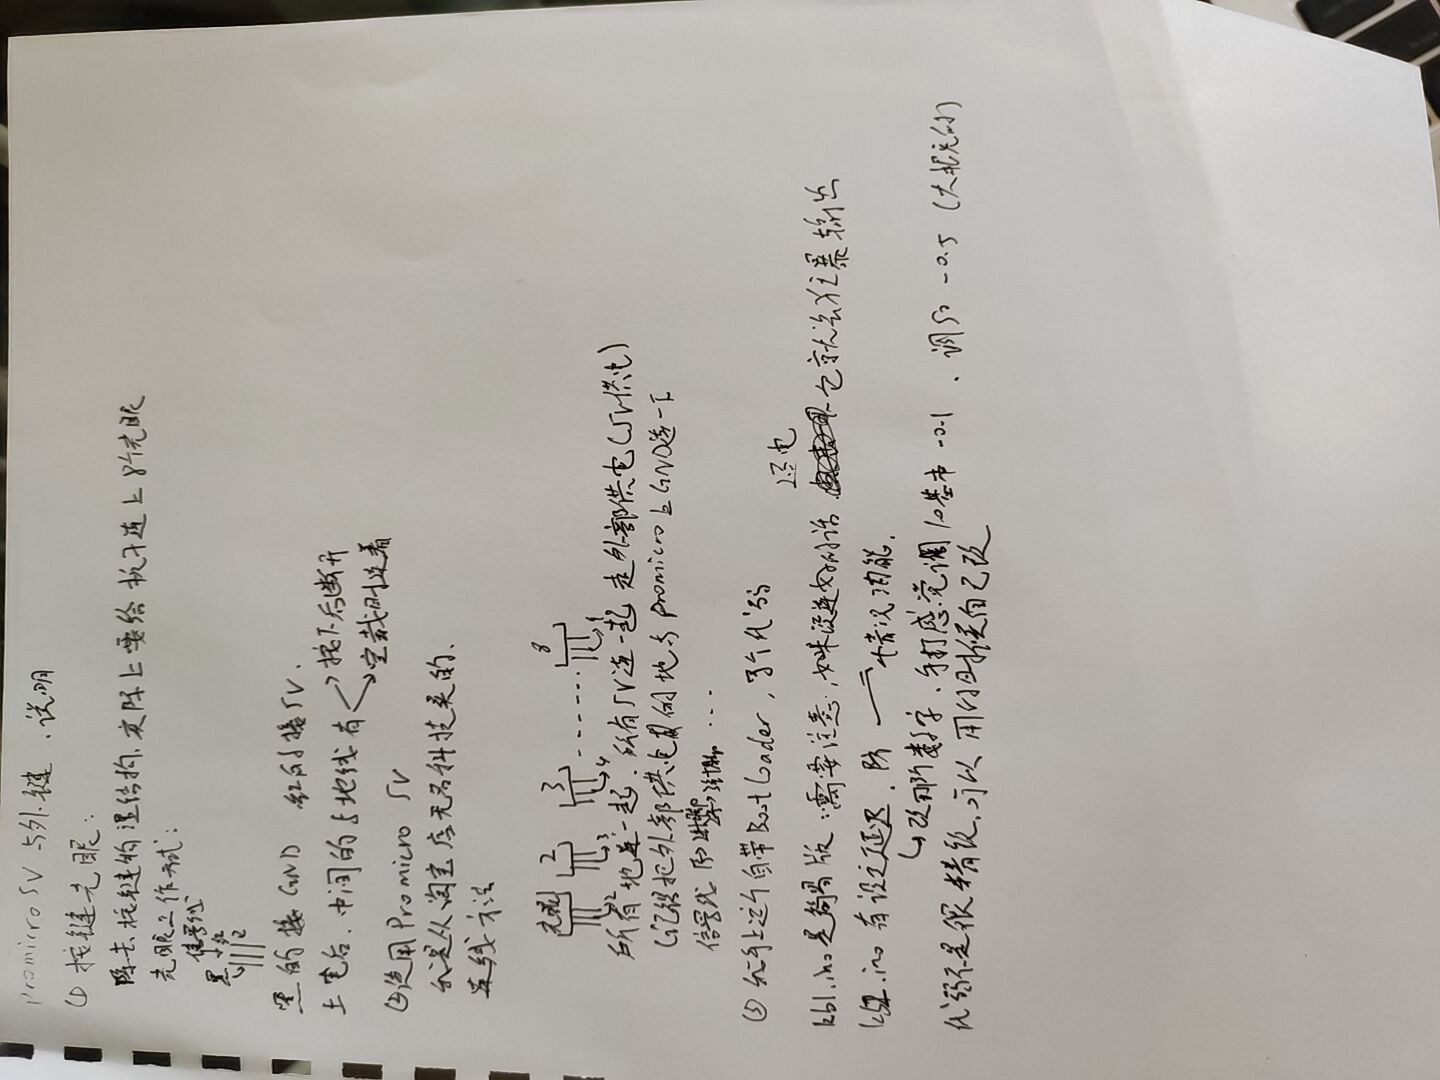 promicro 5V 与外键、说明
① 按键光眼：
除去按键物理结构，实际上要给板子连上8个光眼
光眼工作方式：
信号线
黑 红
黑的接GND 红的接5V.
上电后，中间的与地线有 按下后断开
空载时连着
②使用Promicro 5V
我是从淘宝店无名科技买的.
连线方法
光眼 2 3 ...... 8
2 3 4
所有地连一起，所有5V连一起 走外部供电(5V供电)
(记得把外部供电的地与promicro上GND连一下
信号线 ...
③ 我手上这个自带Bootloader, 两个代码
kb1.ino是简易版：需要注意，如果没连好的话 上电 它就会狂暴输出
kb2.ino 有设定延迟，防 情况功能.
改那个数字，手打感觉调10基本-0.1，调50 -0.5 (大概是的)
代码不是很精致，可以用的时候自己改